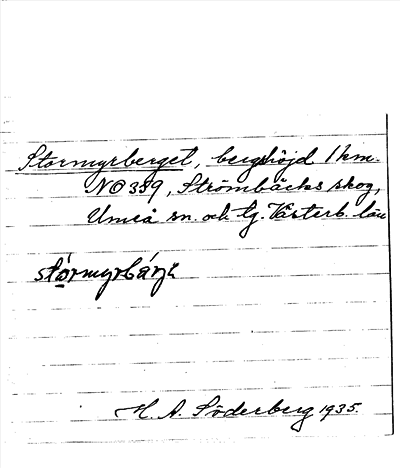 Stormyrberget, bergshöjd 1 km.
NO 389, Strömbäcks skog,
Umeå sn. och tg. Västerb. län
H. A. Söderberg 1935.